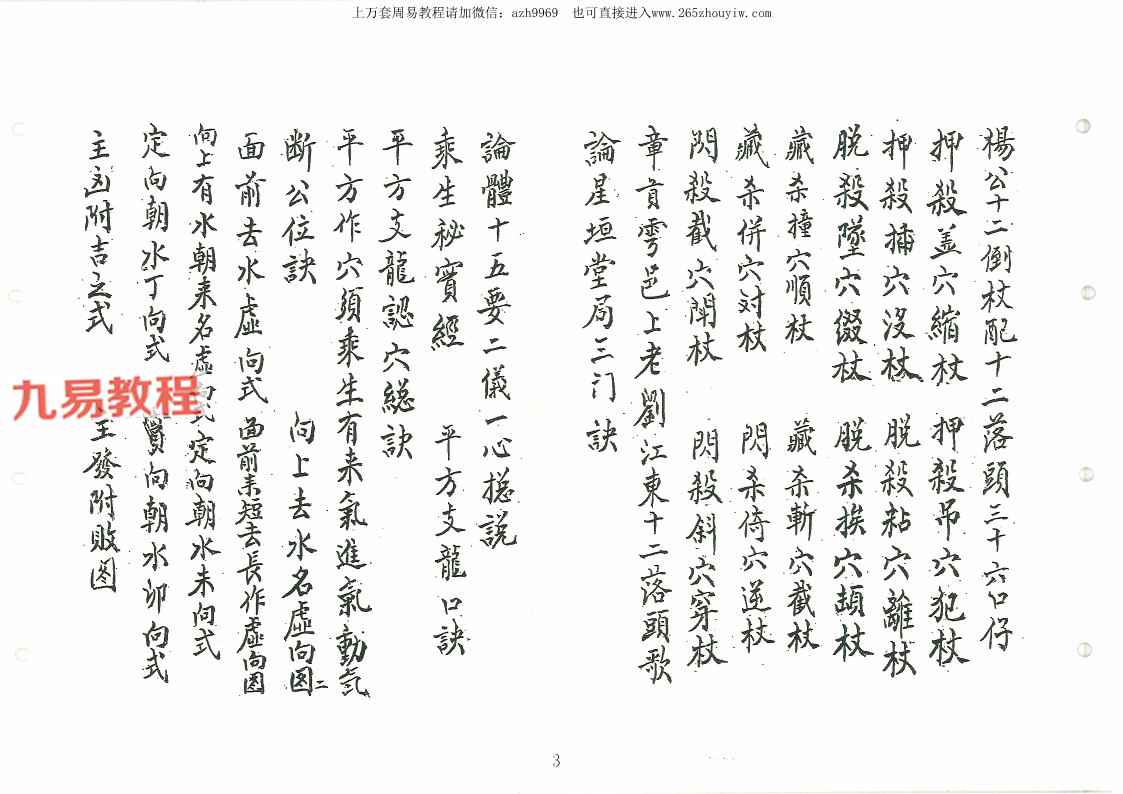 上万套周易教程请加微信：azh9969　也可直接进入www.265zhouyiw.com
楊公十二倒杖配十二落頭三十六口仔
押殺盖穴縮杖　押殺吊穴犯杖
押殺插穴沒杖　脱殺粘穴離杖
脱殺墜穴綴杖　脱杀挨穴頓杖
藏杀撞穴順杖　藏杀斬穴截杖
藏杀併穴对杖　閃杀倚穴逆杖
閃殺截穴開杖　閃殺斜穴穿杖
章貢雩邑上老劉江東十二落頭歌
論星垣堂局三门訣
論體十五要二儀一心摠説
乘生秘寳經　平方支龍口訣
平方支龍認穴総訣
平方作穴須乘生有来氣進氣動氣
断公位訣　向上去水名虚向图二
面前去水虚向式　面前来短去長作虚向图
向上有水朝来名虚向式　定向朝水未向式
定向朝水丁向式　向朝水卯向式
主凶附吉之式　主發附敗图
九易教程
3